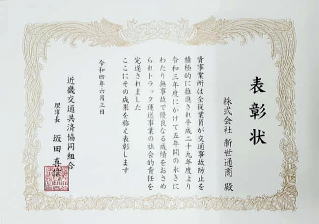 表彰状
株式会社 新世通商 殿
貴事業所は全従業員が交通事故防止を
積極的に推進され平成二十九年度より
令和三年度にかけて五年間の永きに
わたり無事故で優良なる成績をおさめ
られトラック運送事業の社会的責任を
完遂されました
ここにその成果を称え表彰します
令和四年六月三日
近畿交通共済協同組合
理事長 坂田